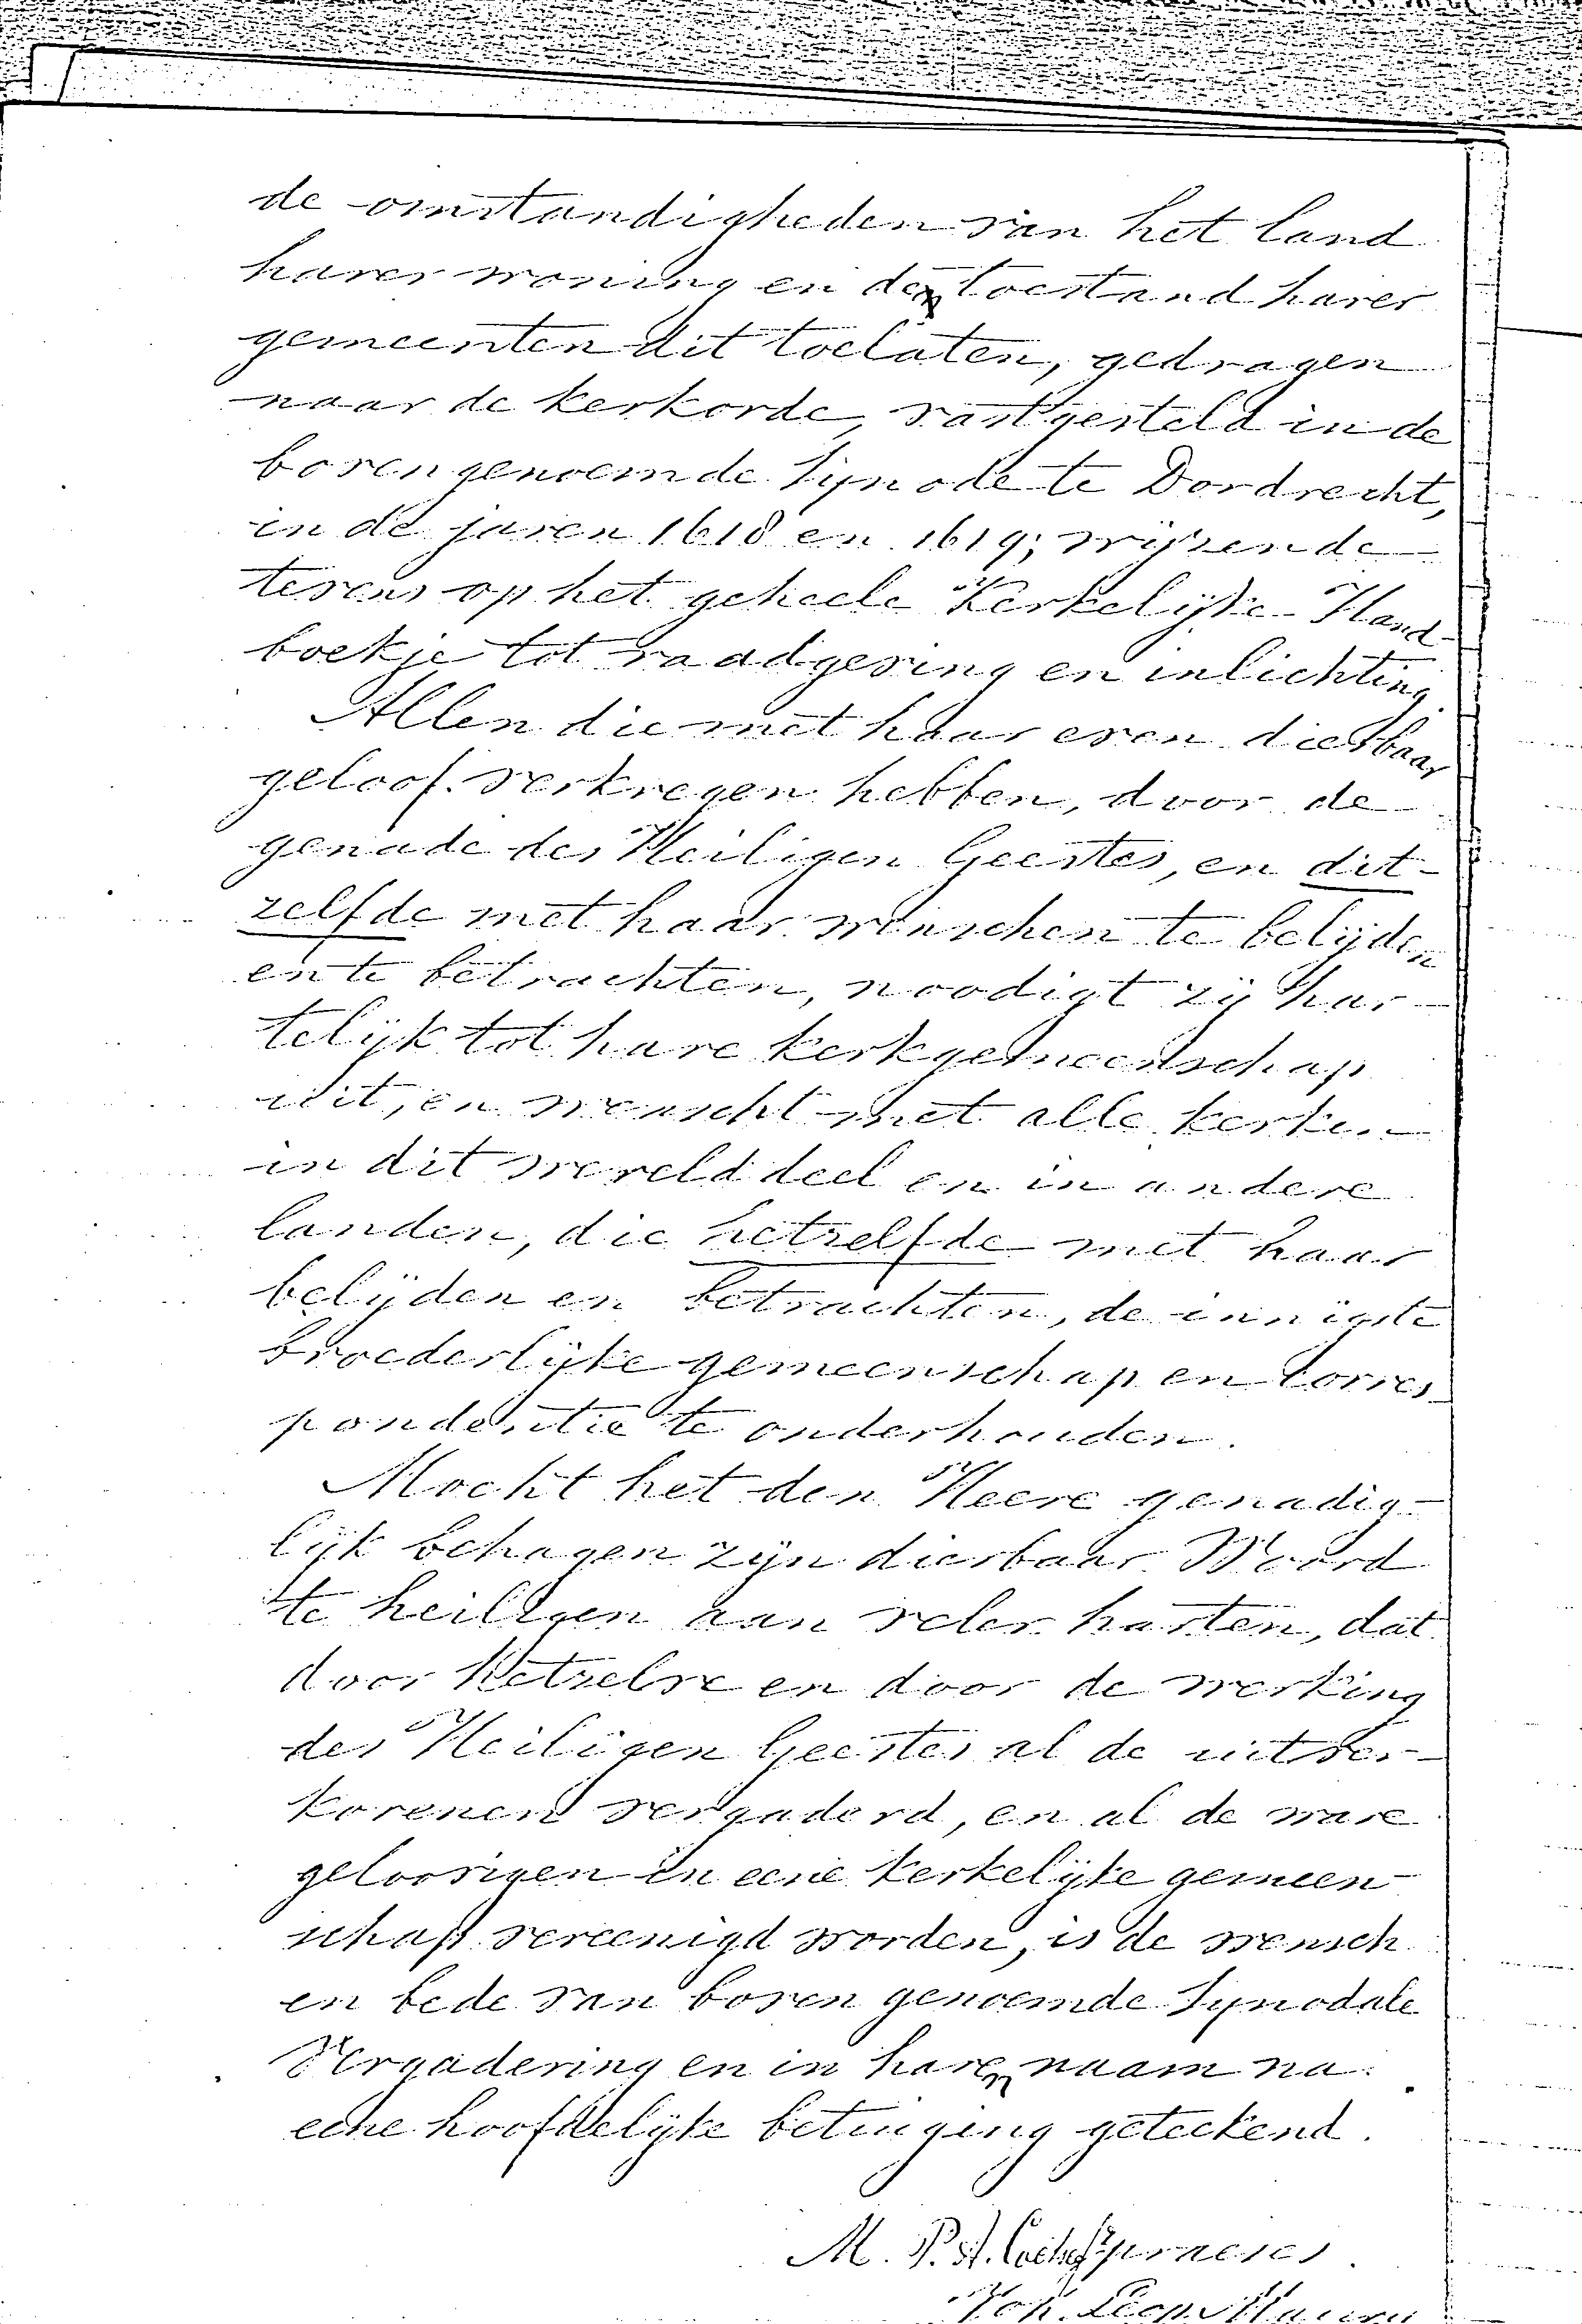 de omstandigheden van het land
harer woning en den toestand harer
gemeenten dit toelaten, gedragen
naar de kerkorde, vastgesteld in de
bovengenoemde Synode te Dordrecht,
in de jaren 1618 en 1619; wijzende
tevens op het geheele Kerkelijke Hand-
boekje tot raadgeving en inlichting.
Allen die met haar even dierbaar
geloof verkregen hebben, door de
genade des Heiligen Geestes, en dit-
zelfde met haar wenschen te belijden
en te betrachten, noodigt zij har-
telijk tot hare kerkgemeenschap
uit, en wenscht met alle kerken
in dit werelddeel en in andere
landen, die hetzelfde met haar
belijden en betrachten, de innigste
broederlijke gemeenschap en corres-
pondentie te onderhouden.
Mocht het den Heere genadig-
lijk behagen zijn dierbaar Woord
te heiligen aan veler harten, dat
door hetzelve en door de werking
des Heiligen Geestes al de uitver-
korenen vergaderd, en al de ware
geloovigen in eene kerkelijke gemeen-
schap vereenigd worden, is de wensch
en bede van boven genoemde Synodale
Vergadering en in haren naam na
eene hoofdelijke betuiging geteekend.
M. P. A. Coetsee Pzn Praeses.
Joh. Leop.